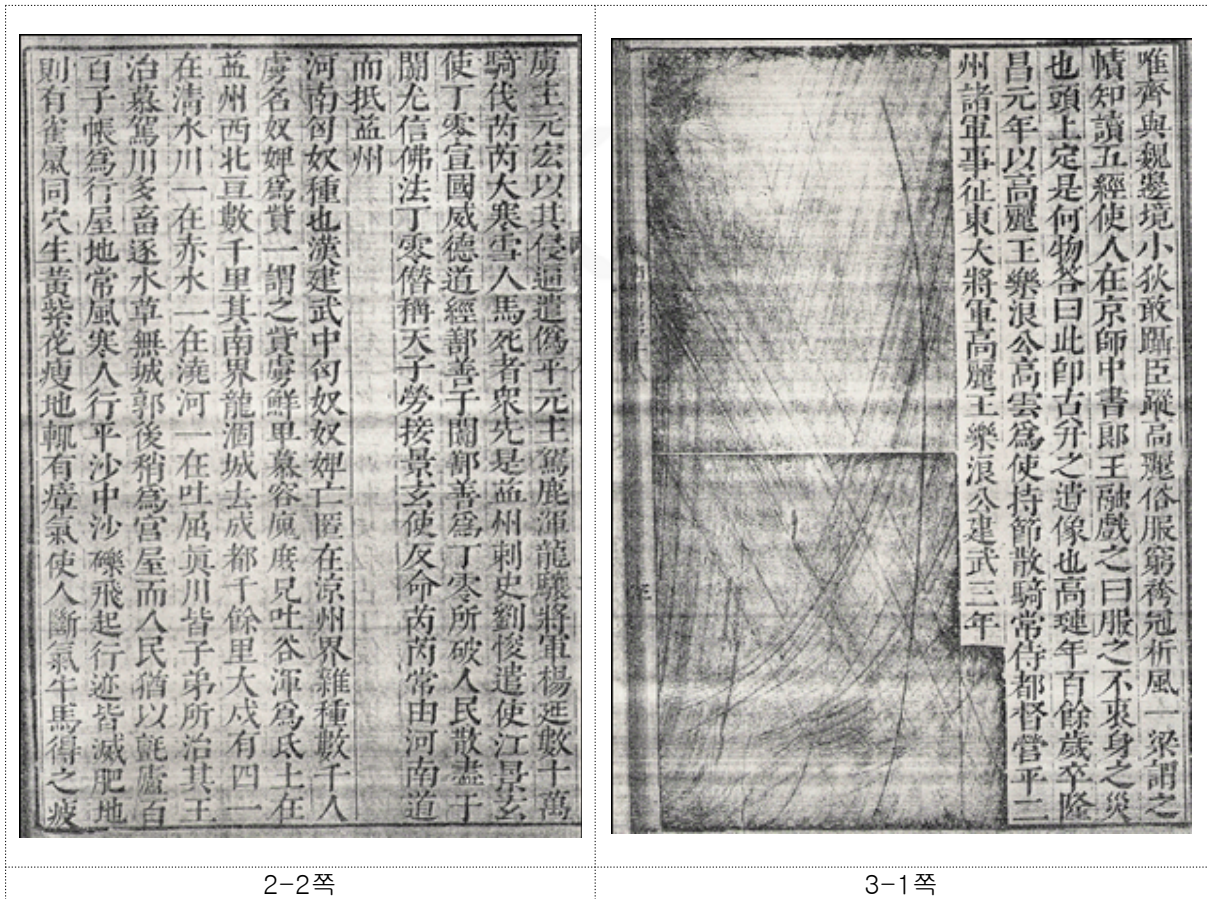 虜主元宏以其侵逼遣僞平元主駕鹿渾龍驤將軍楊延數十萬
騎伐芮芮大寒雪人馬死者衆先是益州刺史劉悛遣使江景玄
使丁零宣國威德道經鄯善于闐鄯善爲丁零所破人民散盡于
闐尤信佛法丁零僭稱天子勞接景玄使反命芮芮常由河南道
而抵益州
河南匈奴種也漢建武中匈奴奴婢亡匿在涼州界雜種數千人
虜名奴婢爲貲一謂之貲虜鮮卑慕容廆庶兄吐谷渾爲氐上在
益州西北亘數千里其南界龍涸城去成都千餘里大戍有四一
在清水川一在赤水一在澆河一在吐屈真川皆子弟所治其王
治慕駕川多畜逐水草無城郭後稍爲宮屋而人民猶以氈廬百
百子帳爲行屋地常風寒人行平沙中沙礫飛起行迹皆滅肥地
則有雀鼠同穴生黃紫花瘦地輒有瘴氣使人斷氣牛馬得之疲
2-2쪽
唯齊與魏邊境小狄敢躡臣蹤高麗俗服窮袴冠析風一梁謂之
幘知讀五經使人在京師中書郎王融戲之曰服之不衷身之災
也頭上定是何物答曰此即古弁之遺像也高璉年百餘歲卒隆
昌元年以高麗王樂浪公高雲爲使持節散騎常侍都督營平二
州諸軍事征東大將軍高麗王樂浪公建武三年
3-1쪽